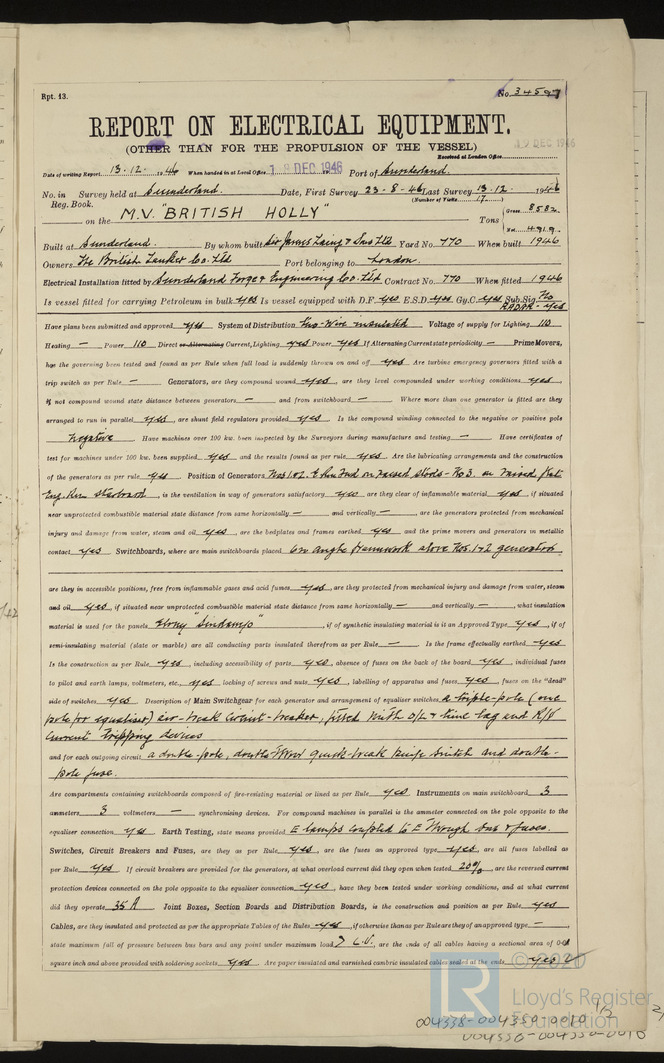 Rpt. 13.
No. 34597
REPORT ON ELECTRICAL EQUIPMENT.
(OTHER THAN FOR THE PROPULSION OF THE VESSEL)
Received at London Office 19 DEC 1946
Date of writing Report 13.12.1946 When handed in at Local Office 18 DEC 1946 Port of Sunderland.
No. in Survey held at Sunderland. Date, First Survey 23-8-46 Last Survey 13.12. 1946
Reg. Book. (Number of Visits 17.)
on the M.V. "BRITISH HOLLY" Tons Gross 8582 Net 4919
Built at Sunderland. By whom built Sir James Laing & Sons Ltd Yard No. 770 When built 1946
Owners The British Tanker Co. Ltd Port belonging to London.
Electrical Installation fitted by Sunderland Forge & Engineering Co. Ltd Contract No. 770 When fitted 1946
Is vessel fitted for carrying Petroleum in bulk yes Is vessel equipped with D.F. yes E.S.D. yes Gy.C. yes Sub.Sig. No
RADAR - yes
Have plans been submitted and approved yes System of Distribution Two-Wire insulated Voltage of supply for Lighting 110
Heating — Power 110 Direct or Alternating Current, Lighting yes Power yes If Alternating Current state periodicity — Prime Movers,
has the governing been tested and found as per Rule when full load is suddenly thrown on and off yes Are turbine emergency governors fitted with a
trip switch as per Rule — Generators, are they compound wound yes, are they level compounded under working conditions yes,
if not compound wound state distance between generators — and from switchboard — Where more than one generator is fitted are they
arranged to run in parallel yes, are shunt field regulators provided yes Is the compound winding connected to the negative or positive pole
negative Have machines over 100 kw. been inspected by the Surveyors during manufacture and testing — Have certificates of
test for machines under 100 kw. been supplied yes and the results found as per rule yes Are the lubricating arrangements and the construction
of the generators as per rule yes Position of Generators Nos 1 & 2. Eng. Rm Fwd on raised stools - No 3 on raised flat
Eng. Rm starboard, is the ventilation in way of generators satisfactory yes are they clear of inflammable material yes, if situated
near unprotected combustible material state distance from same horizontally — and vertically —, are the generators protected from mechanical
injury and damage from water, steam and oil yes, are the bedplates and frames earthed yes and the prime movers and generators in metallic
contact yes Switchboards, where are main switchboards placed On angle framework above Nos. 1 & 2 generators
are they in accessible positions, free from inflammable gases and acid fumes yes, are they protected from mechanical injury and damage from water, steam
and oil yes, if situated near unprotected combustible material state distance from same horizontally — and vertically —, what insulation
material is used for the panels Ebony "Sindanyo", if of synthetic insulating material is it an Approved Type yes, if of
semi-insulating material (slate or marble) are all conducting parts insulated therefrom as per Rule — Is the frame effectually earthed yes
Is the construction as per Rule yes, including accessibility of parts yes, absence of fuses on the back of the board yes, individual fuses
to pilot and earth lamps, voltmeters, etc., yes locking of screws and nuts yes, labelling of apparatus and fuses yes, fuses on the "dead"
side of switches yes Description of Main Switchgear for each generator and arrangement of equaliser switches a triple-pole (one
pole for equaliser) air-break circuit-breaker, fitted with O/L & time lag and R/V
current tripping devices
and for each outgoing circuit a double-pole, double throw quick-break knife switch and double-
pole fuse.
Are compartments containing switchboards composed of fire-resisting material or lined as per Rule yes Instruments on main switchboard 3
ammeters 3 voltmeters — synchronising devices. For compound machines in parallel is the ammeter connected on the pole opposite to the
equaliser connection yes Earth Testing, state means provided E lamps coupled to E through sws & fuses.
Switches, Circuit Breakers and Fuses, are they as per Rule yes, are the fuses an approved type yes, are all fuses labelled as
per Rule yes If circuit breakers are provided for the generators, at what overload current did they open when tested 20%, are the reversed current
protection devices connected on the pole opposite to the equaliser connection yes, have they been tested under working conditions, and at what current
did they operate 35 A Joint Boxes, Section Boards and Distribution Boards, is the construction and position as per Rule yes
Cables, are they insulated and protected as per the appropriate Tables of the Rules yes, if otherwise than as per Rule are they of an approved type —,
state maximum fall of pressure between bus bars and any point under maximum load 7 L.V., are the ends of all cables having a sectional area of 0·04
square inch and above provided with soldering sockets yes Are paper insulated and varnished cambric insulated cables sealed at the ends yes
© 2020
LR
Lloyd's Register
Foundation
004338-004350-0010 1/2